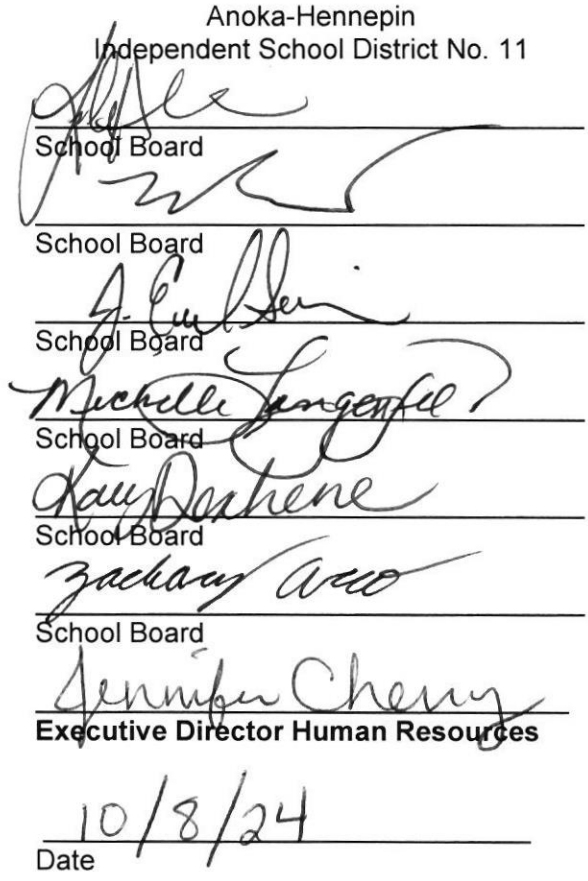 Anoka-Hennepin
Independent School District No. 11
School Board
School Board
J.
School Board
Michelle Langenfeld
School Board
Kacy Deschene
School Board
Zachary Arco
School Board
Jennifer Cherry
Executive Director Human Resources
10/8/24
Date